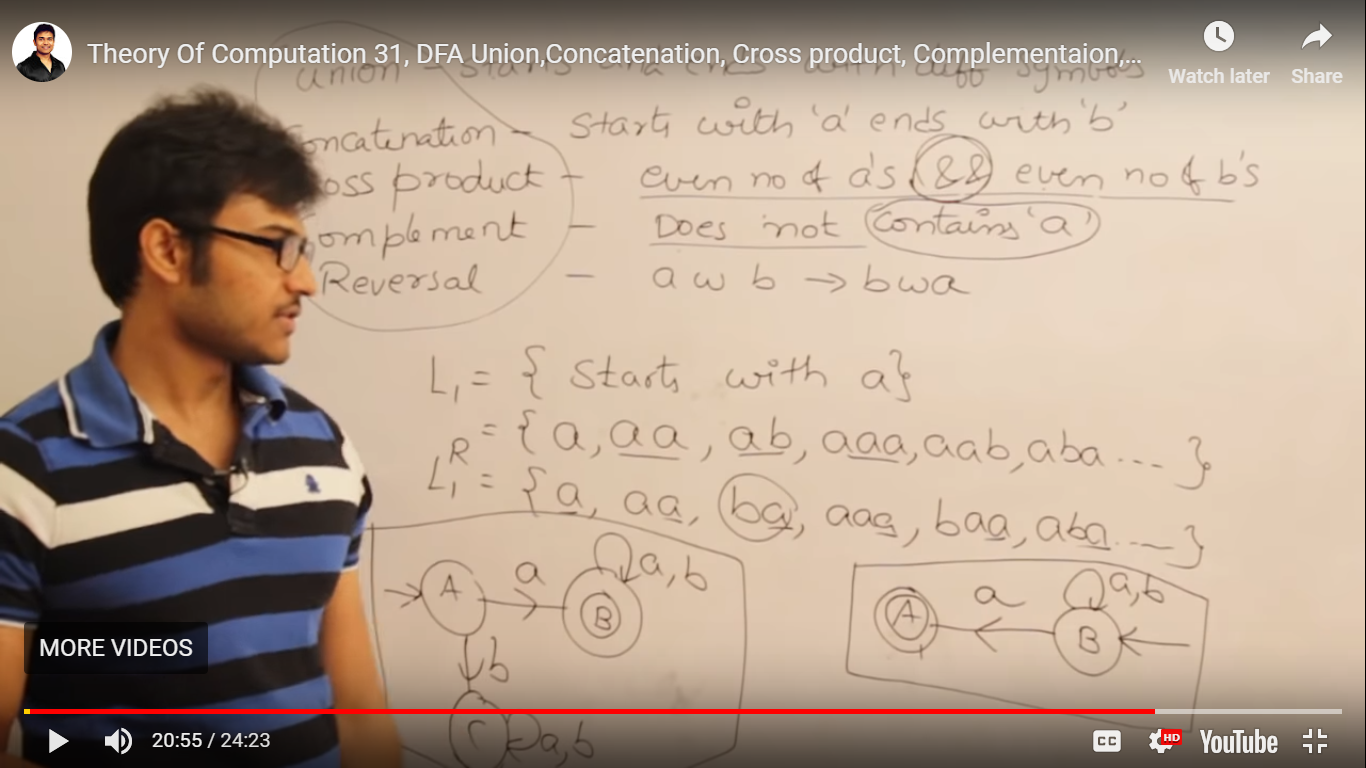 Theory Of Computation 31, DFA Union,Concatenation, Cross product, Complementaion,...
Watch later
Share
union - starts and ends with diff symbols
oncatination - starts with 'a' ends with 'b'
oss product - even no of a's && even no of b's
omplement - Does not contains 'a'
Reversal - a w b → b w a
L₁ = { starts with a}
= {a, aa, ab, aaa, aab, aba ... }
L₁ᴿ = {a, aa, ba, aaa, baa, aba ... }
A a B a,b
b
C a,b
A a B a,b
MORE VIDEOS
20:55 / 24:23
CC
HD
YouTube